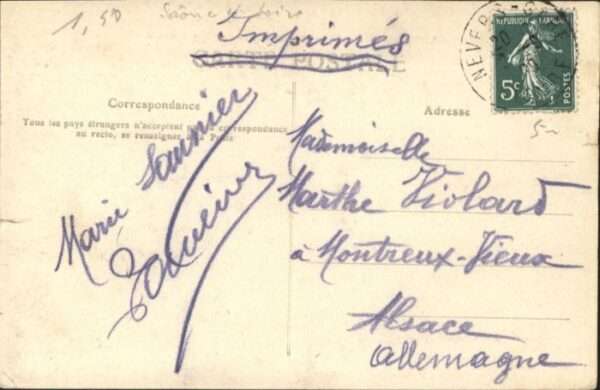 1,50
Saône et Loire
Imprimés
CARTE POSTALE
NEVERS
RÉPUBLIQUE FRANÇAISE
5c
POSTES
Correspondance
Tous les pays étrangers n'acceptent pas la correspondance
au recto, se renseigner à la Poste
Adresse
5-
Marie Saunier
Mademoiselle
Marthe Violard
à Montreux-Vieux
Alsace
Allemagne